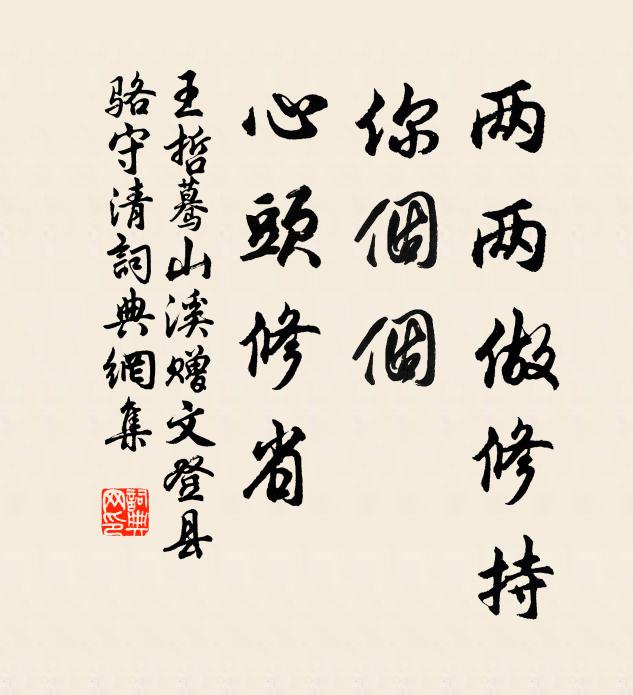 两两做修持
你個個
心頭修省
王哲蓦山溪赠文登县
骆守清詞典網集
詞典
网印